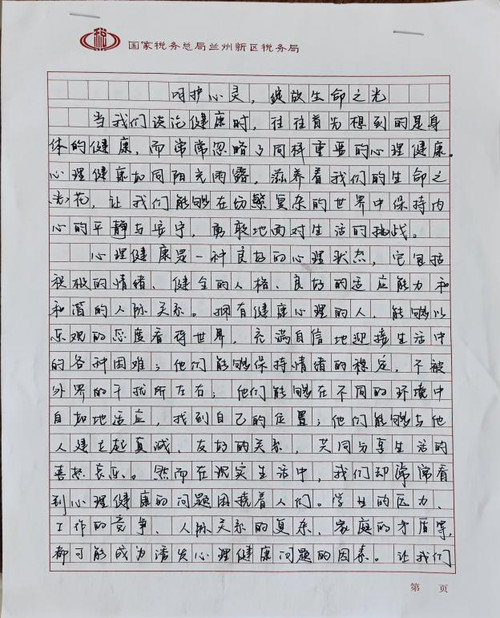 国家税务总局兰州新区税务局
呵护心灵，绽放生命之光
当我们谈论健康时，往往首先想到的是身
体的健康，而常常忽略了同样重要的心理健康。
心理健康如同阳光雨露，滋养着我们的生命之
花，让我们能够在纷繁复杂的世界中保持内
心的平静与安宁，勇敢地面对生活的挑战。
心理健康是一种良好的心理状态，它包括
积极的情绪、健全的人格、良好的适应能力和
和谐的人际关系。拥有健康心理的人，能够以
乐观的态度看待世界，充满自信地迎接生活中
的各种困难；他们能够保持情绪的稳定，不被
外界的干扰所左右；他们能够在不同的环境中
自如地适应，找到自己的位置；他们能够与他
人建立起真诚、友好的关系，共同分享生活的
喜怒哀乐。然而在现实生活中，我们却常常看
到心理健康的问题困扰着人们。学业的压力、
工作的竞争、人际关系的复杂、家庭的矛盾等，
都可能成为诱发心理健康问题的因素。让我们
第 页